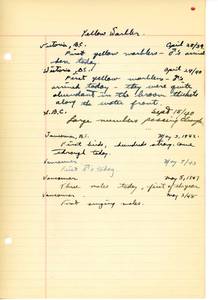 Yellow Warbler.
Victoria, B.C. April 28/39
First yellow warblers - ♂'s arrived
here today.
Victoria, B.C. April 24/40
First yellow warblers - ♂'s
arrived today - they were quite
abundant in the Broom thickets
along the water front.
U.B.C. Sept 15/40
Large numbers passing through
Vancouver, B.C. May 3, 1942
First birds, hundreds strong, came
through today.
Vancouver May 7/43
First ♂'s today.
Vancouver May 5, 1947
Three males today, first of the year
Vancouver May 3/48
First singing males.